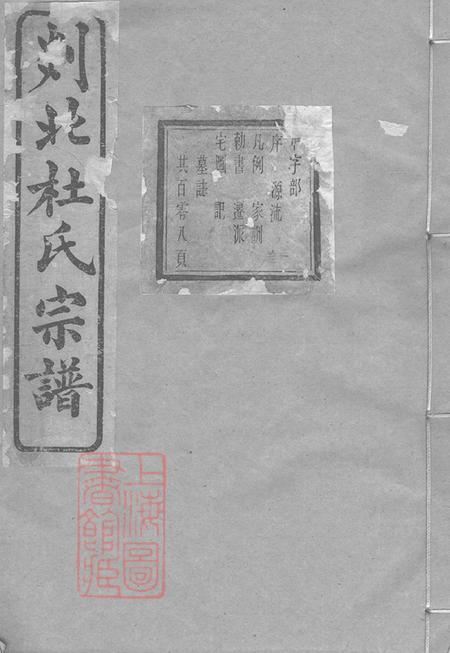 剡北杜氏宗譜
字部
序 源流
凡例 家訓
勅書 遷派
宅圖 記
墓誌
共百零八頁
上海圖
書館藏